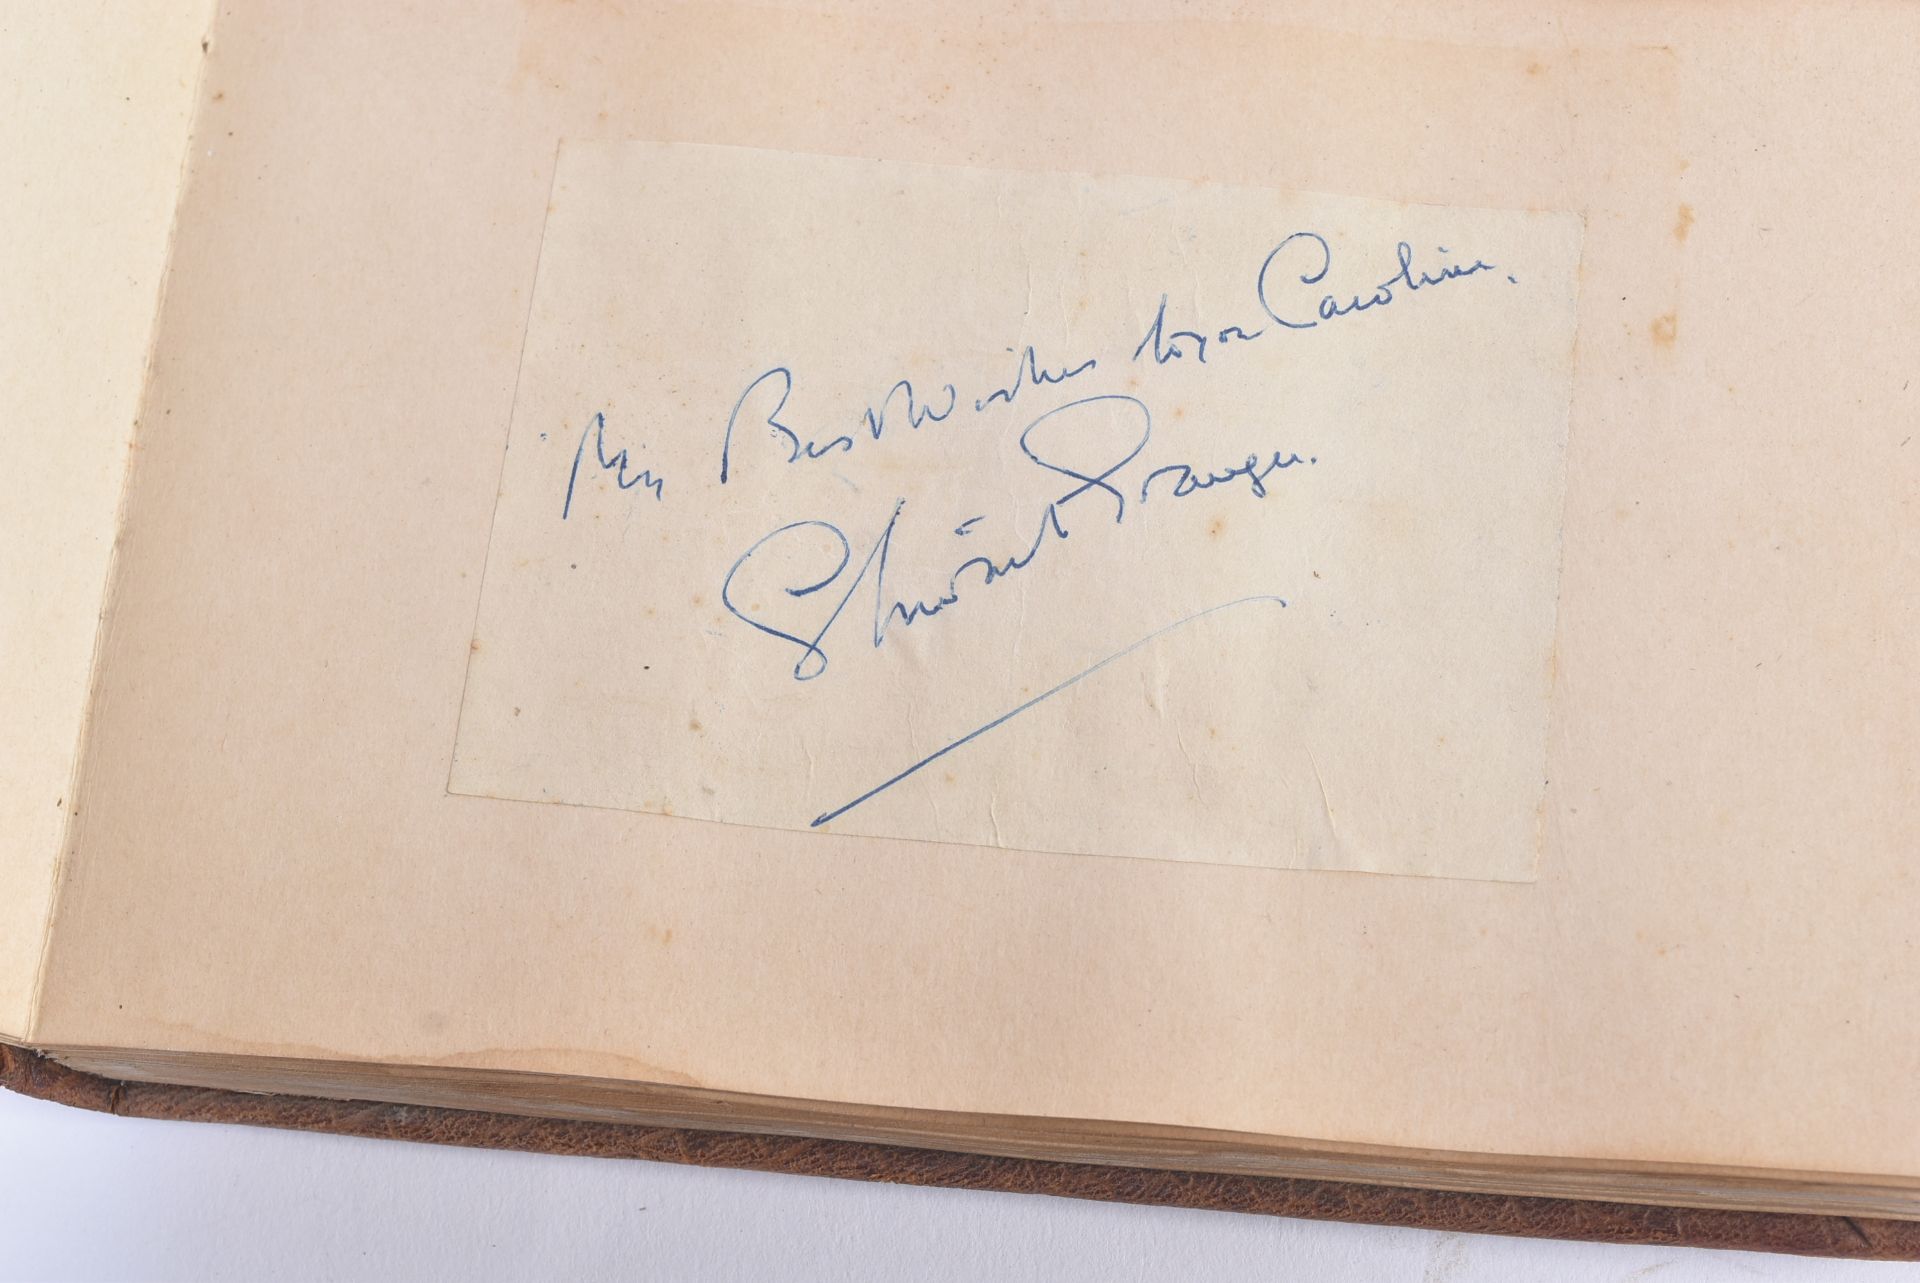 My Best Wishes to you Caroline.
Stewart Granger.